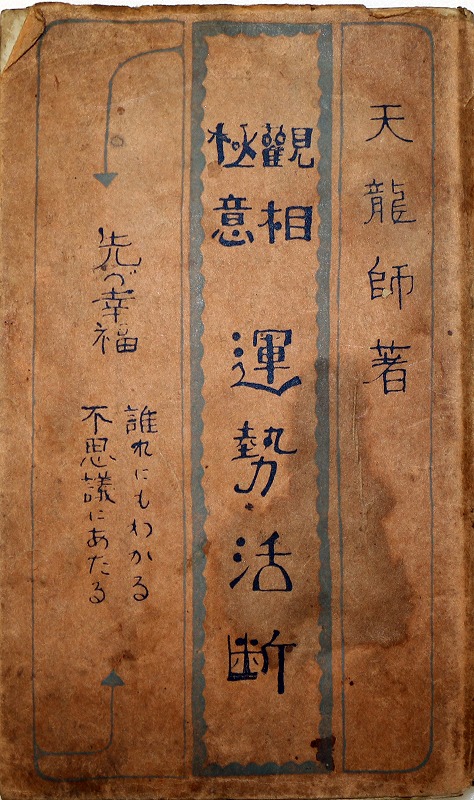 天龍師著
觀相
極意
運勢活断
先づ幸福
誰れにもわかる
不思議にあたる